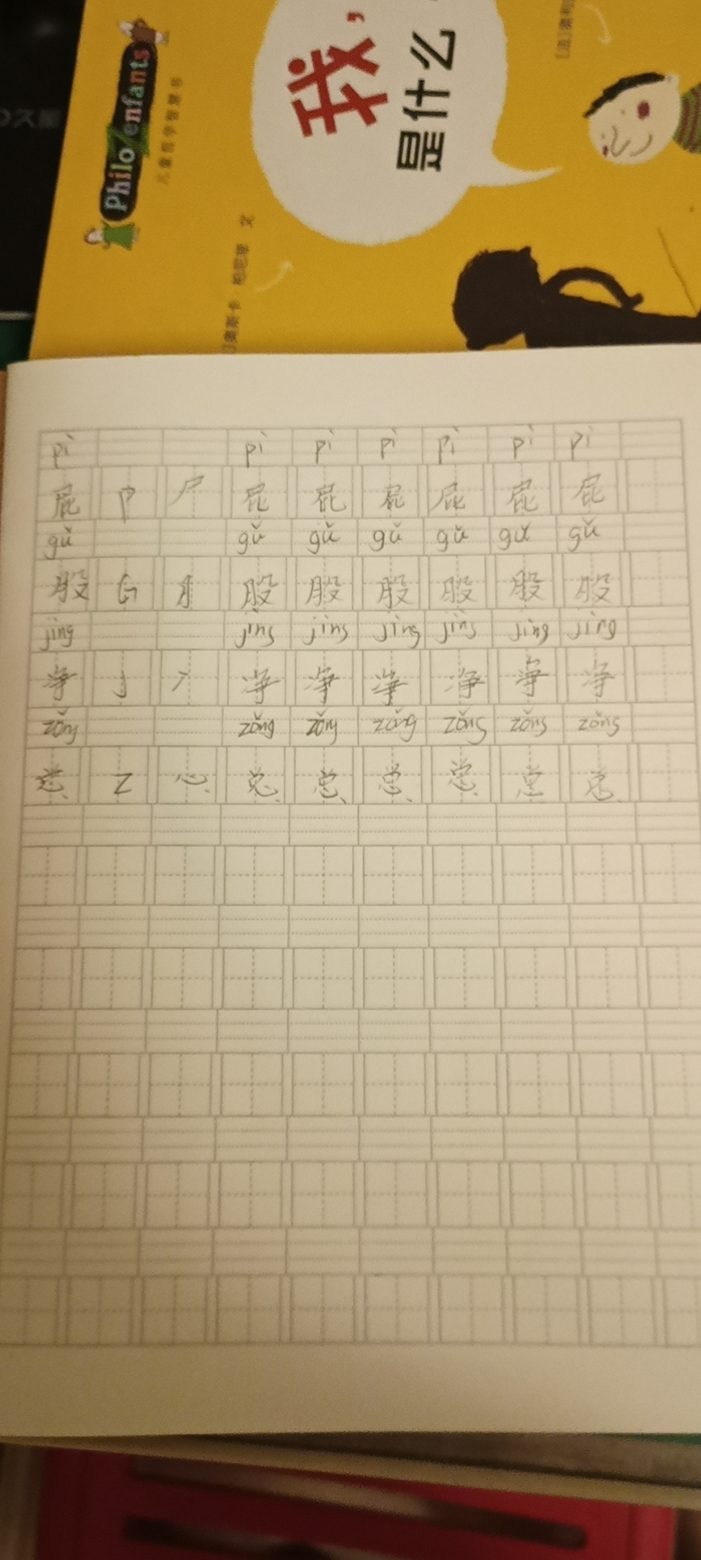 久量
Philo Zenfants
儿童哲学智慧书
我，
是什么
奥斯卡·柏尼菲 文
pì pì pì pì pì pì pì
屁 P 尸 屁 屁 屁 屁 屁 屁
gǔ gǔ gǔ gǔ gǔ gǔ gǔ
股 G 月 股 股 股 股 股 股
jìng jìng jìng jìng jìng jìng jìng
净 J 冫 净 净 净 净 净 净
zǒng zǒng zǒng zǒng zǒng zǒng zǒng
总 Z 心 总 总 总 总 总 总